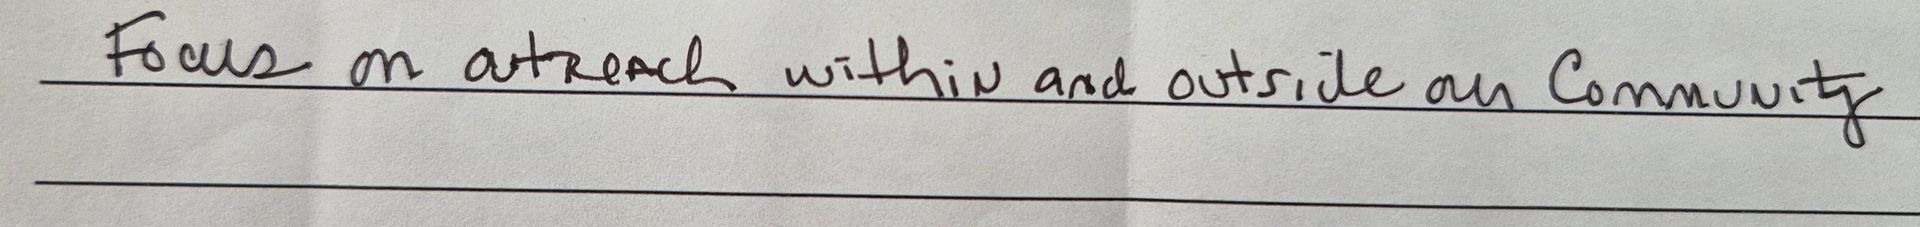 Focus on outreach within and outside our Community